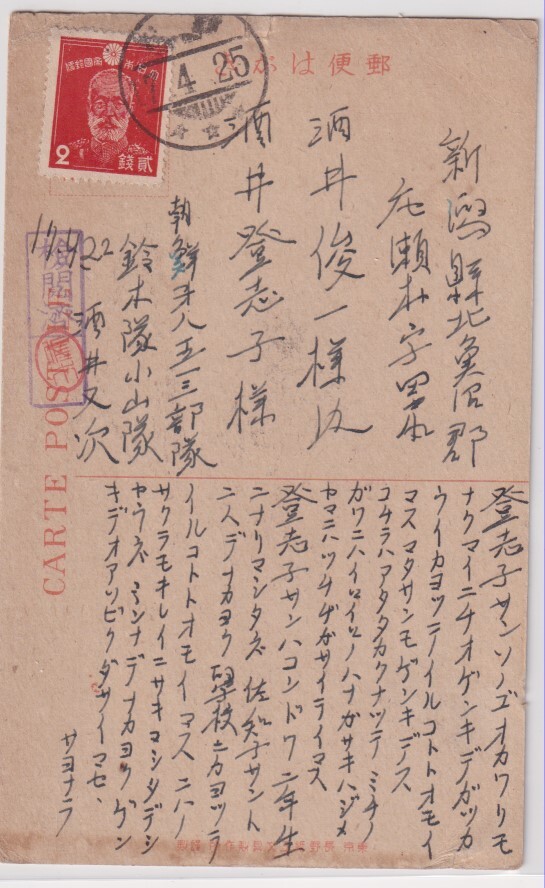 郵便はがき
大日本帝國郵便
2
貳錢
4.25
新潟縣北魚沼郡
広瀬村字
酒井俊一様内
酒井登志子様
朝鮮第八五一三部隊
鈴木隊小山隊
酒井又次
22
検閲濟
CARTE POSTALE
登志子サンソノゴオカワリモ
ナクマイニチオゲンキデガッカ
ウイカヨッテイルコトトオモイ
マスマタサンモゲンキデス
コチラハアタタカクナッテミチノ
ガワニハイロイロノハナガサキハジメ
ヤマニハツツヂガサイテイマス
登志子サンハコンドワ二年生
ニナリマシタネ佐知子サント
二人デナカヨク學校ニカヨッテ
イルコトトオモイマスニハノ
サクラモキレイニサキマシタデシ
ヤウネミンナデナカヨクゲン
キデオアソビクダサイマセ、
サヨナラ